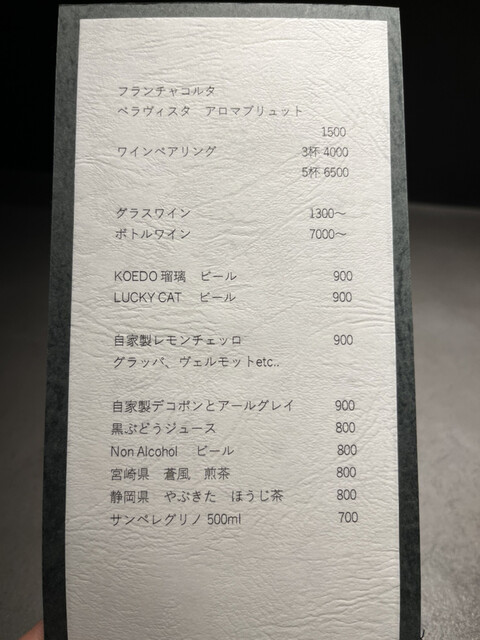 フランチャコルタ
ベラヴィスタ　アロマブリュット
1500
ワインペアリング　3杯 4000
5杯 6500
グラスワイン　1300～
ボトルワイン　7000～
KOEDO 瑠璃　ビール　900
LUCKY CAT　ビール　900
自家製レモンチェッロ　900
グラッパ、ヴェルモットetc..
自家製デコポンとアールグレイ　900
黒ぶどうジュース　800
Non Alcohol　ビール　800
宮崎県　蒼風　煎茶　800
静岡県　やぶきた　ほうじ茶　800
サンペレグリノ 500ml　700